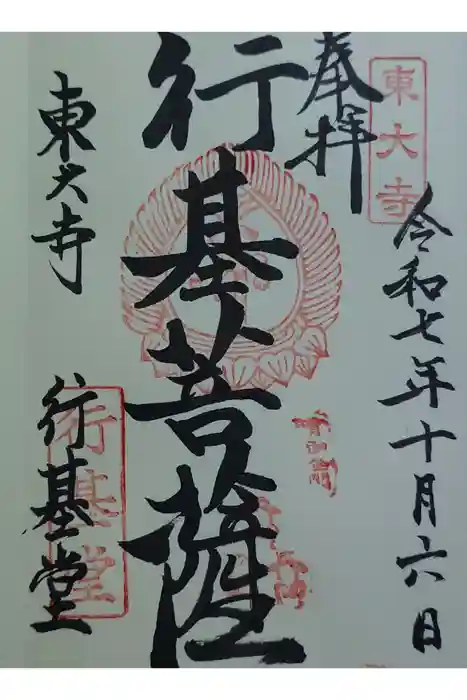 東大寺
奉拝
令和七年十月六日
行基菩薩
東大寺
行基堂
行基堂